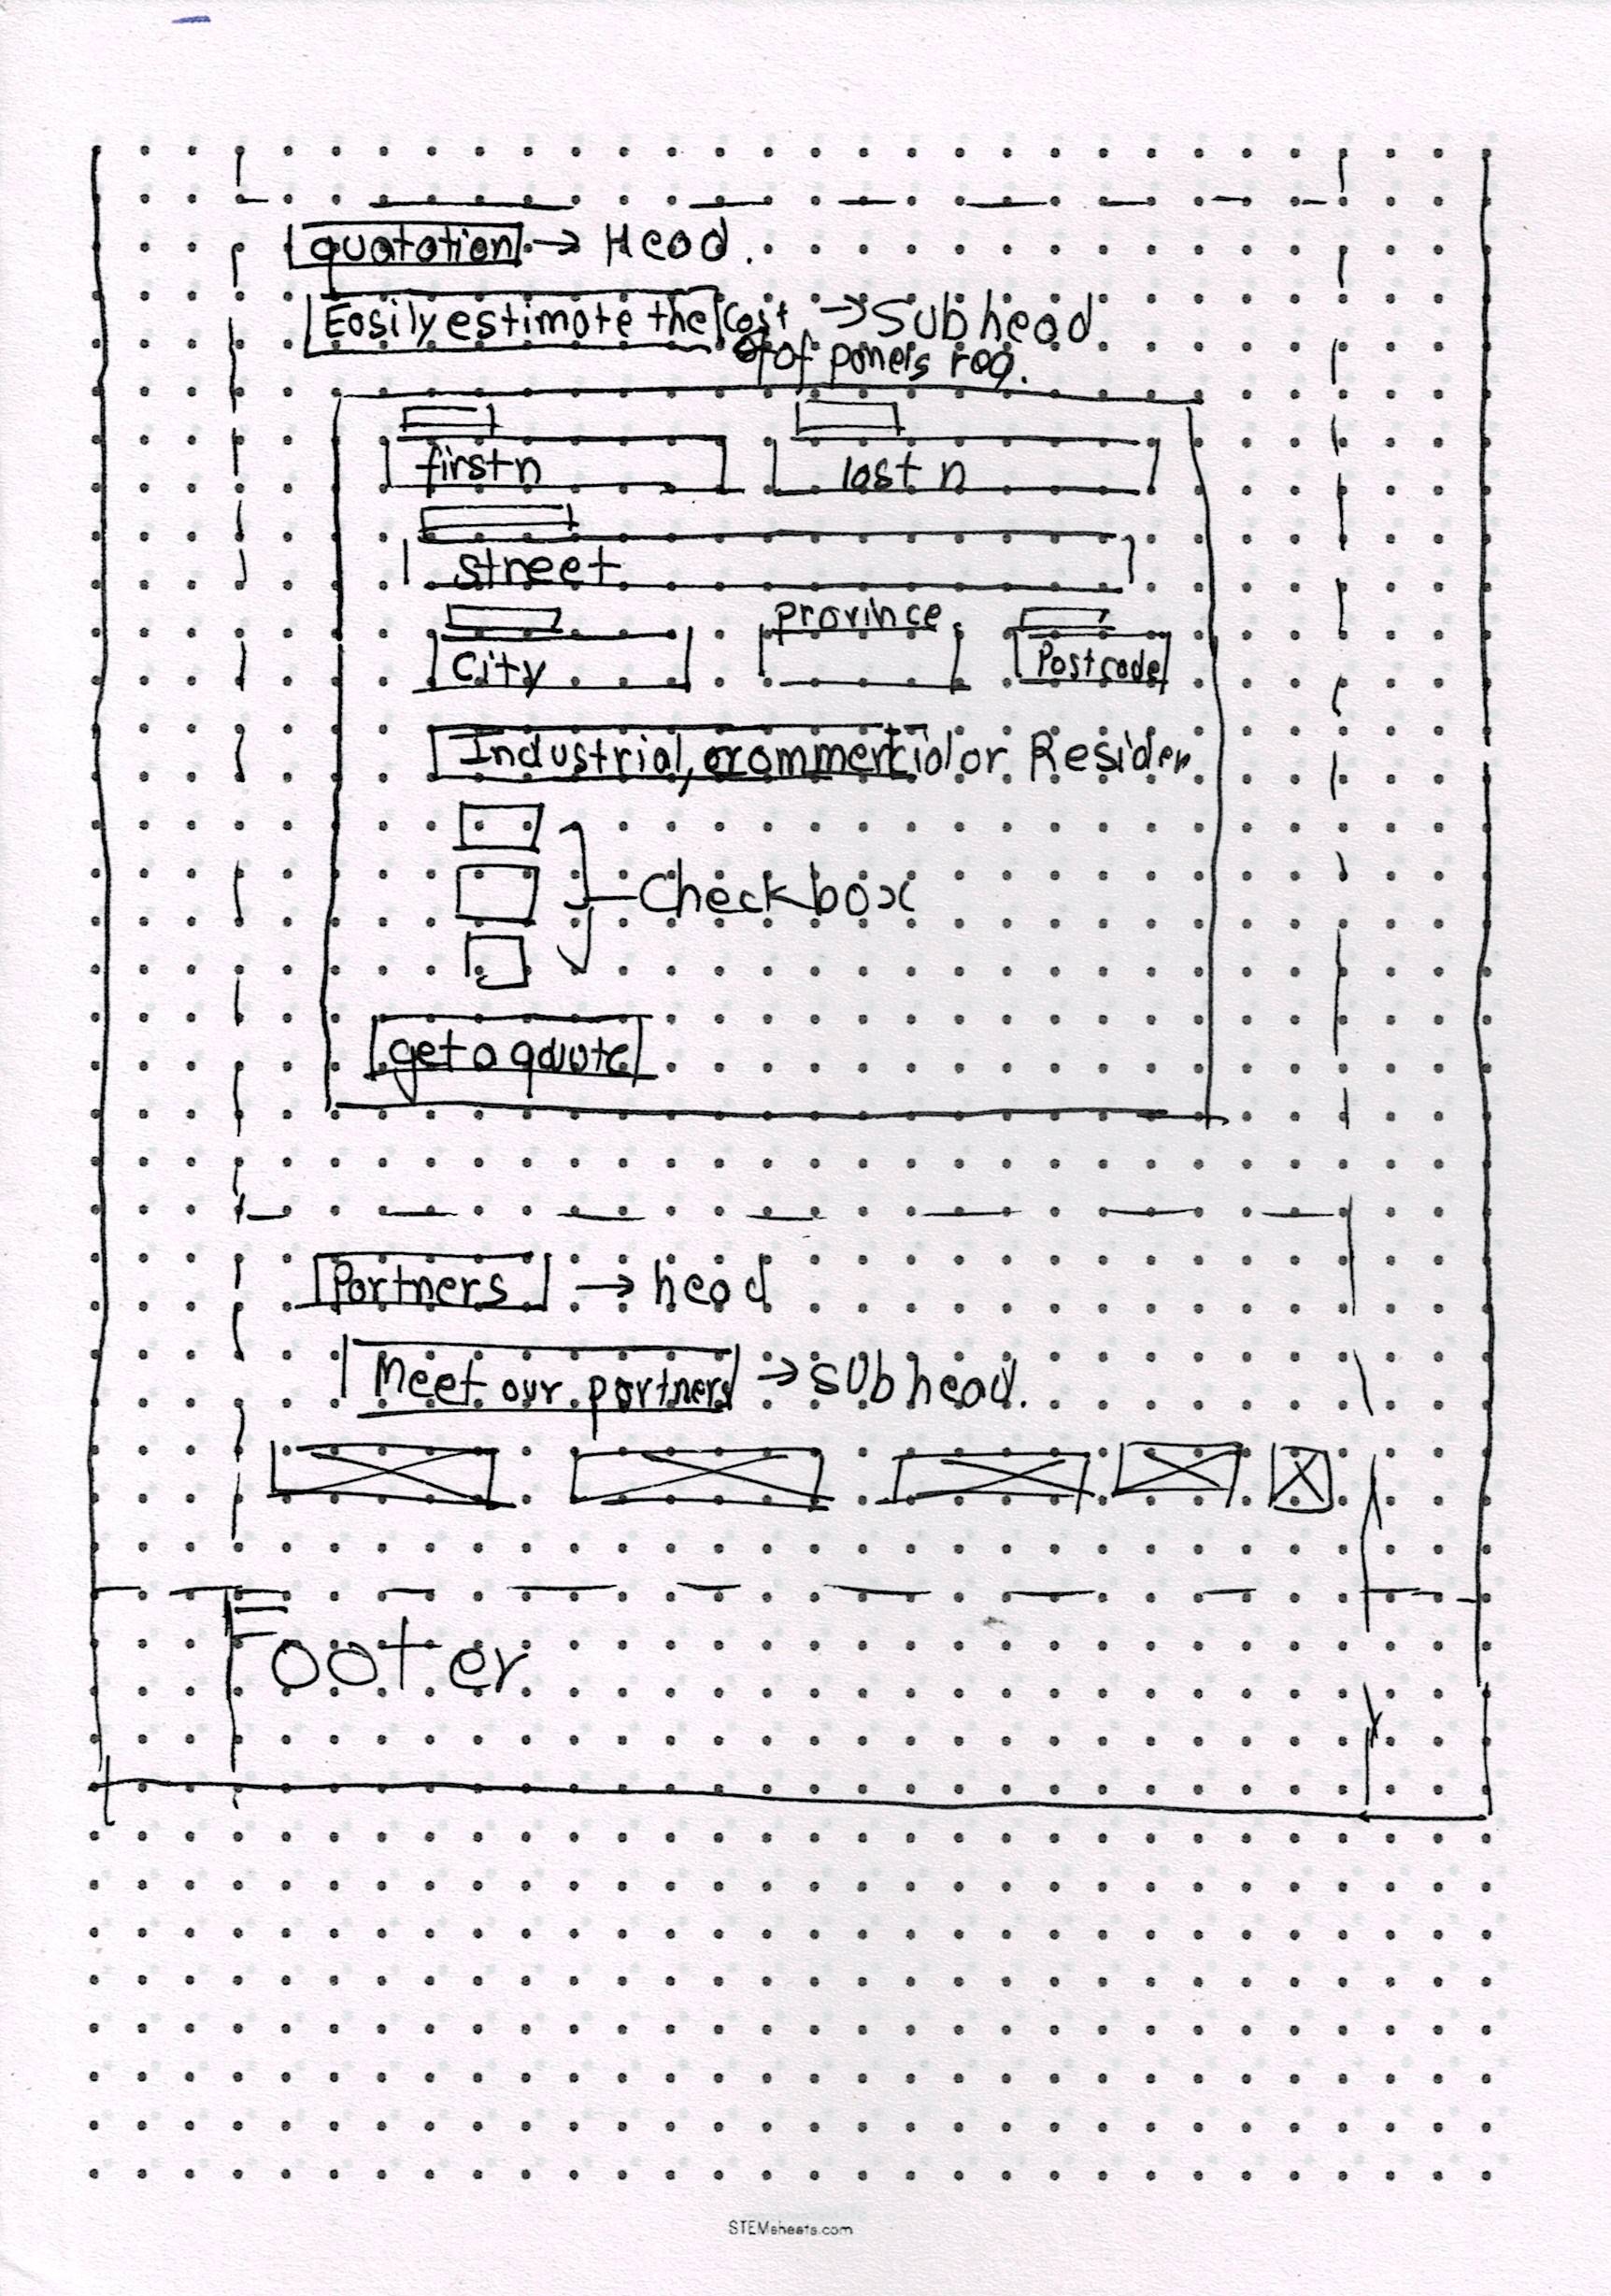 quotation → Head.
Easily estimate the cost → Subhead
of panels req.
first n last n
street
province
City Postcode
Industrial, commercial or Residen
Checkbox
get a quote
Partners → head
Meet our partners → subhead.
Footer
STEMsheets.com